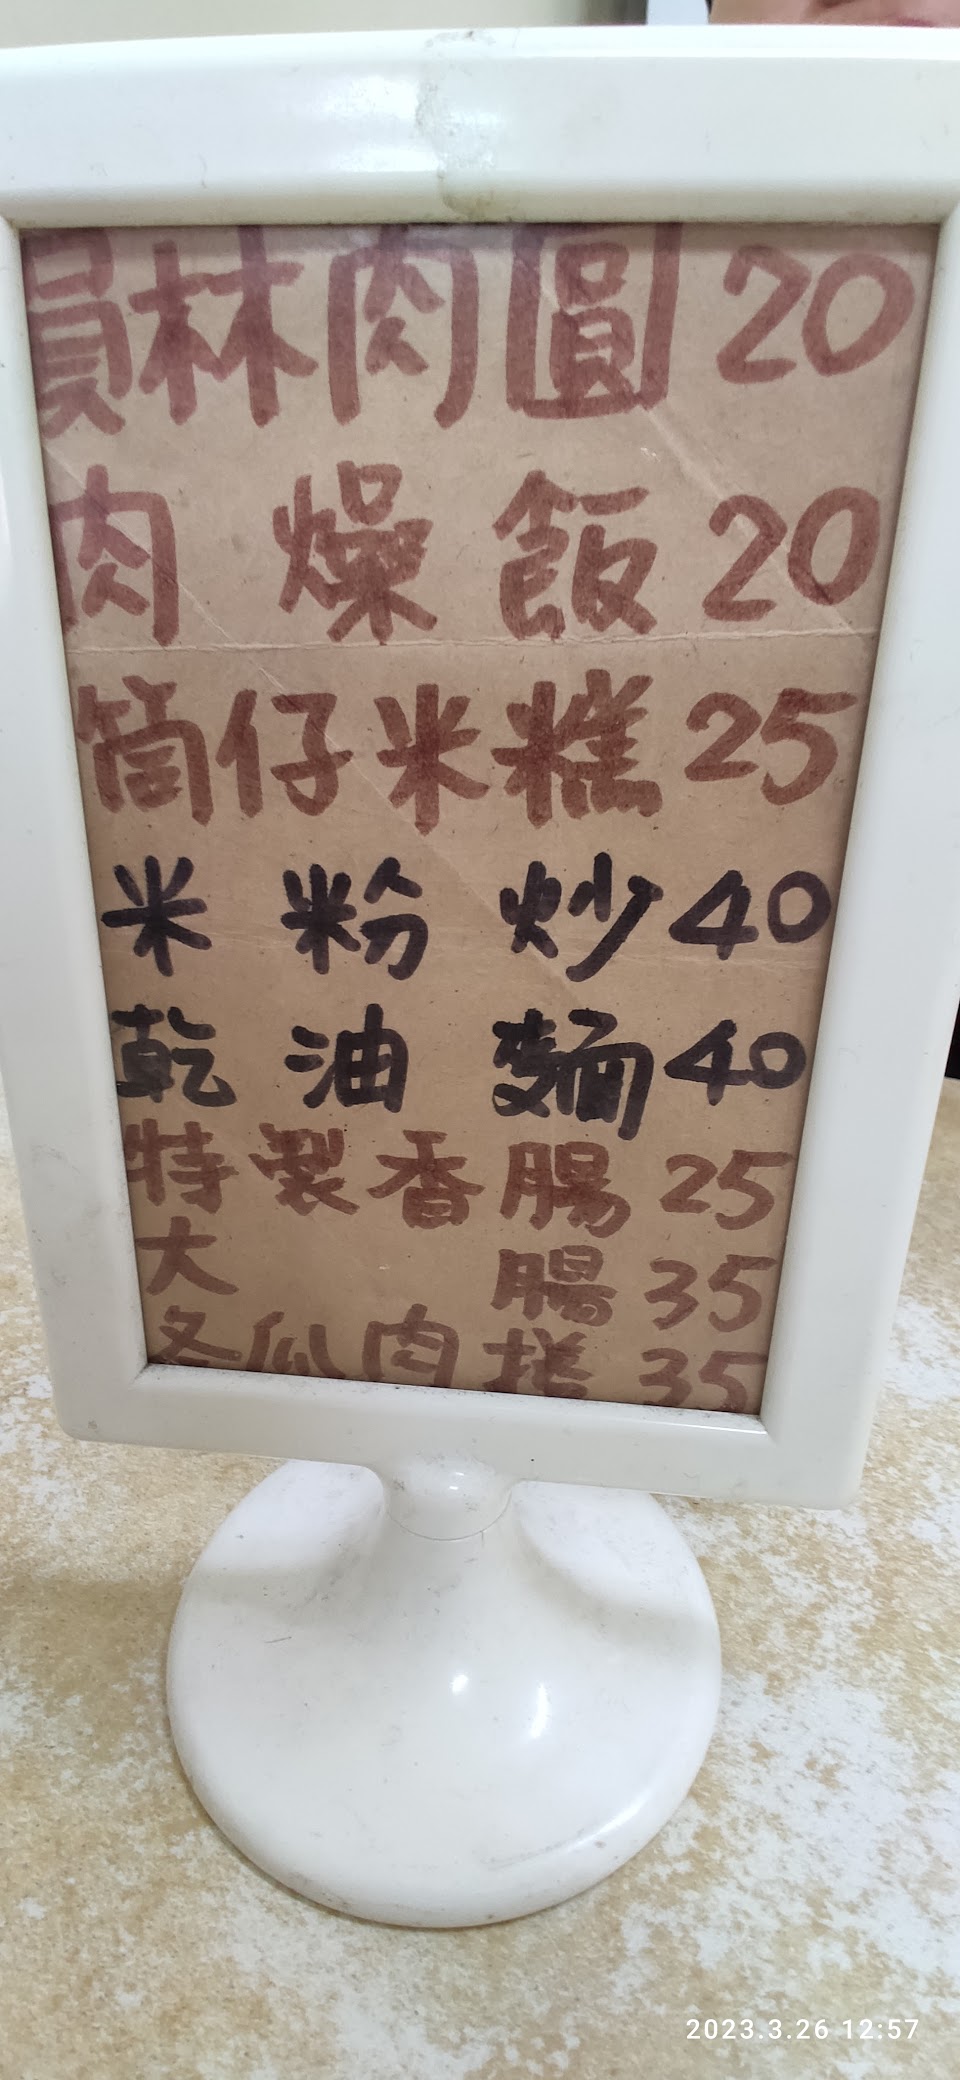 員林肉圓 20
肉燥飯 20
筒仔米糕 25
米粉炒 40
乾油麵 40
特製香腸 25
大腸 35
冬瓜肉 35
2023.3.26 12:57